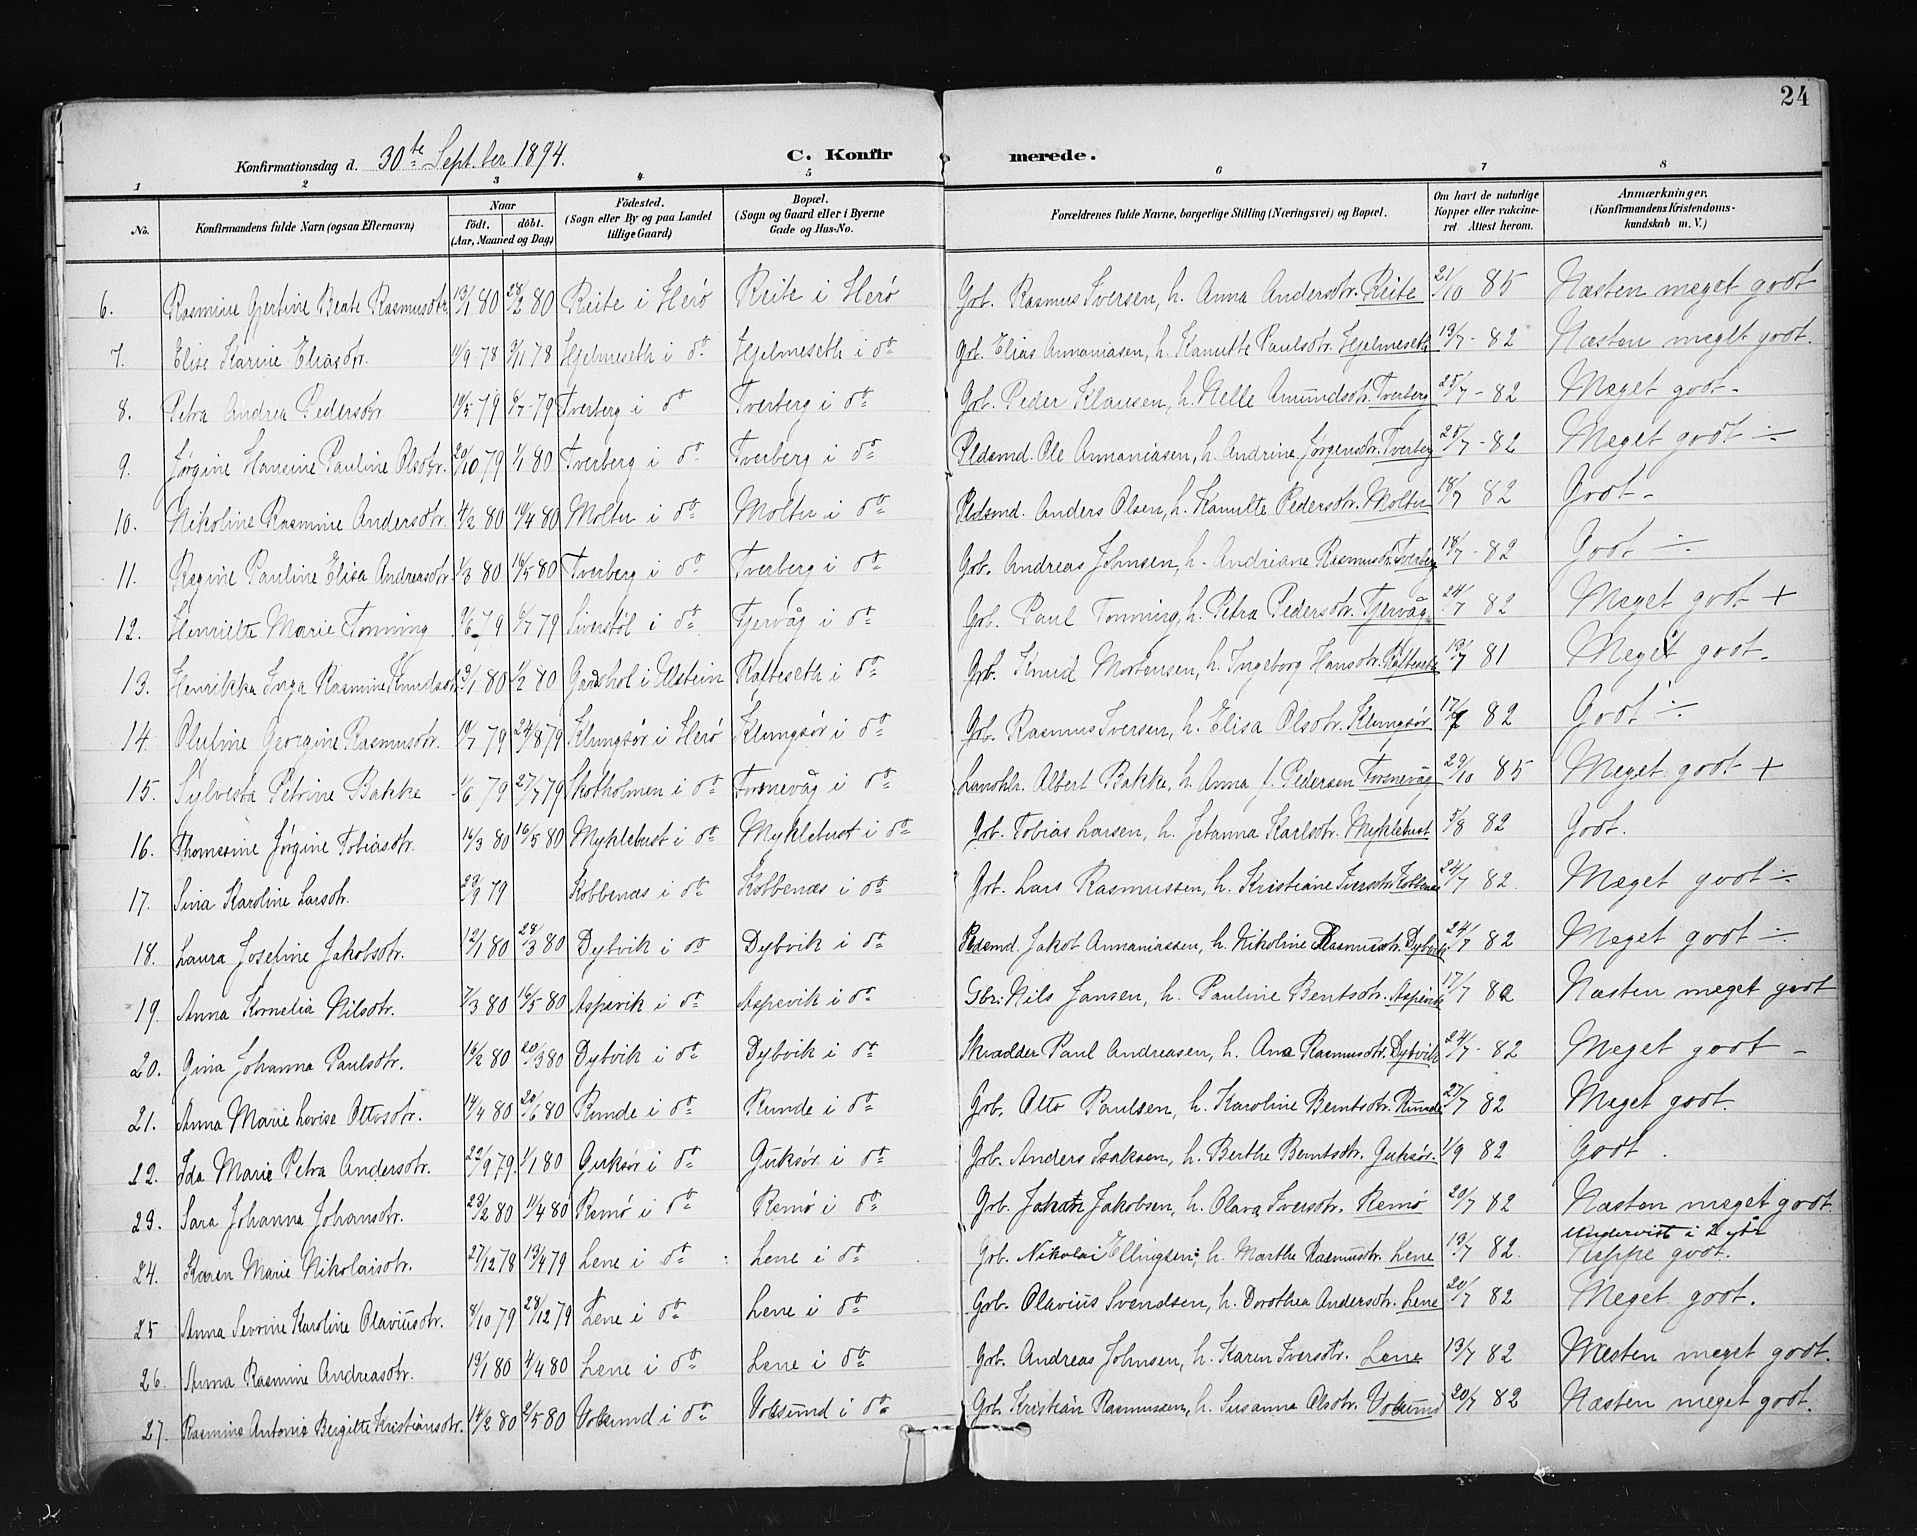 24
Konfirmationsdag d. 30te Sept.ber 1894. C. Konfir merede.
1 2 3 4 5 6 7 8
No. Konfirmandens fulde Navn (ogsaa Efternavn) Naar født. døbt. (Aar, Maaned og Dag) Fødested. (Sogn eller By og paa Landet tillige Gaard) Bopæl. (Sogn og Gaard eller i Byerne Gade og Hus-No. Forældrenes fulde Navne, borgerlige Stilling (Næringsvei) og Bopæl. Om havt de naturlige Kopper eller vakcineret Attest herom. Anmærkninger. (Konfirmandens Kristendomskundskab m. V.)
6. Rasmine Gjertine Beate Rasmusdtr. 13/1 80 28/2 80 Reite i Herø Reite i Herø Grb. Rasmus Iversen, h. Anna Andersdtr. Reite 21/10 85 Næsten meget godt
7. Elise Karine Eliasdtr. 11/9 78 3/11 78 Hjelmeseth i do Hjelmeseth i do Grb. Elias Annaniasen, h. Kanutte Paulsdtr. Hjelmeseth 19/7 - 82 Næsten meget godt.
8. Petra Andrea Pedersdtr. 19/5 79 6/7 79 Tverberg i do Tverberg i do Grb. Peder Klausen, h. Nelle Amundsdtr. Tverberg 25/7 - 82 Meget godt -
9. Jørgine Hansine Pauline Olsdtr. 20/10 79 1/1 80 Tverberg i do Tverberg i do Pldsmd. Ole Annaniasen, h. Andrine Jørgensdtr. Tverberg 25/7 - 82 Meget godt ÷
10. Nikoline Rasmine Andersdtr. 4/2 80 19/4 80 Moltu i do Moltu i do Pldsmd. Anders Olsen, h. Kanutte Pedersdtr. Moltu 18/7 82 Godt -
11. Regine Pauline Elisa Andreasdtr. 1/3 80 16/5 80 Tverberg i do Tverberg i do Grb. Andreas Johnsen, h. Andriane Rasmusdtr. Tverberg 18/7 - 82 Godt ÷
12. Henriette Marie Tonning 9/6 79 6/7 79 Siverstøl i do Tjervåg i do Grb. Paul Tonning, h. Petra Pedersdtr. Tjervåg 24/7 82 Meget godt +
13. Henrikka Inga Rasmine Knudsdtr. 13/1 80 1/2 80 Garshol i Ulstein Kalteseth i do Grb. Knud Mortensen, h. Ingeborg Hansdtr. Kalteseth 13/7 81 Meget godt.
14. Oluline Georgine Rasmusdtr. 19/7 79 24/8 79 Klungsør i Herø Klungsør i do Grb. Rasmus Iversen, h. Elisa Olsdtr. Klungsør 17/7 82 Godt ÷
15. Sylvesta Petrine Bakke 1/6 79 27/7 79 Skotholmen i do Fosnevåg i do Landhl. Albert Bakke, h. Anna f. Pedersen Fosnevåg 29/10 85 Meget godt +
16. Thomasine Jørgine Tobiasdtr. 16/3 80 16/5 80 Myklebust i do Myklebust i do Grb. Tobias Larsen, h. Jetanna Karlsdtr. Myklebust 5/8 82 Godt.
17. Sina Karoline Larsdtr. 29/9 79 Kobbenæs i do Kobbenæs i do Grb. Lars Rasmussen, h. Kristiane Iversdtr. Kobbenæs 24/7 82. Meget godt ÷
18. Laura Josefine Jakobsdtr. 12/1 80 28/3 80 Dybvik i do Dybvik i do Pldsmd. Jakob Annaniassen, h. Nikoline Rasmusdtr. Dybvik 24/7 82 Meget godt ÷
19. Anna Kornelia Nilsdtr. 7/3 80 16/5 80 Aspevik i do Aspevik i do Gbr. Nils Jansen, h. Pauline Bentsdtr. Aspevik 17/7 82 Næsten meget godt
20. Gina Johanna Paulsdtr. 16/2 80 20/3 80 Dybvik i do Dybvik i do Skrædder Paul Andreasen, h. Ane Rasmusdtr. Dybvik 24/7 - 82 Meget godt -
21. Anna Marie Lovise Ottosdtr. 14/4 80 20/6 80 Runde i do Runde i do Grb. Otto Paulsen, h. Karoline Berntsdtr. Runde 27/7 82 Meget godt.
22. Ida Marie Petra Andersdtr. 22/9 79. 1/1 80 Guksør i do Guksør i do Grb. Anders Isaksen, h. Berthe Berntsdtr. Guksør 1/9 82 Godt.
23. Sara Johanna Johansdtr. 23/2 80 11/4 80 Remø i do Remø i do Grb. Jakob Jakobsen, h. Olava Iversdtr. Remø 20/7 82 Næsten meget godt.
24. Karen Marie Nikolaisdtr. 27/12 78 13/4 79 Lene i do Lene i do Grb. Nikolai Ellingsen, h. Marthe Rasmusdtr. Lene 13/7 82. Undervist i Neppe godt.
25 Anna Sevrine Karoline Olaviusdtr. 8/10 79 28/12 79 Lene i do Lene i do Grb. Olavius Svendsen, h. Dorothea Andersdtr. Lene 20/7 82 Meget godt.
26. Anna Rasmine Andreasdtr. 19/1 80 4/4 80 Lene i do Lene i do Grb. Andreas Johnsen, h. Karen Iversdtr. Lene 13/7 82 Næsten meget godt.
27. Rasmine Antonie Bergitte Kristiansdtr. 14/2 80 2/5 80 Voksund i do Voksund i do Grb. Kristian Rasmussen, h. Susanne Olsdtr. Voksund 20/7 82 Næsten meget godt.